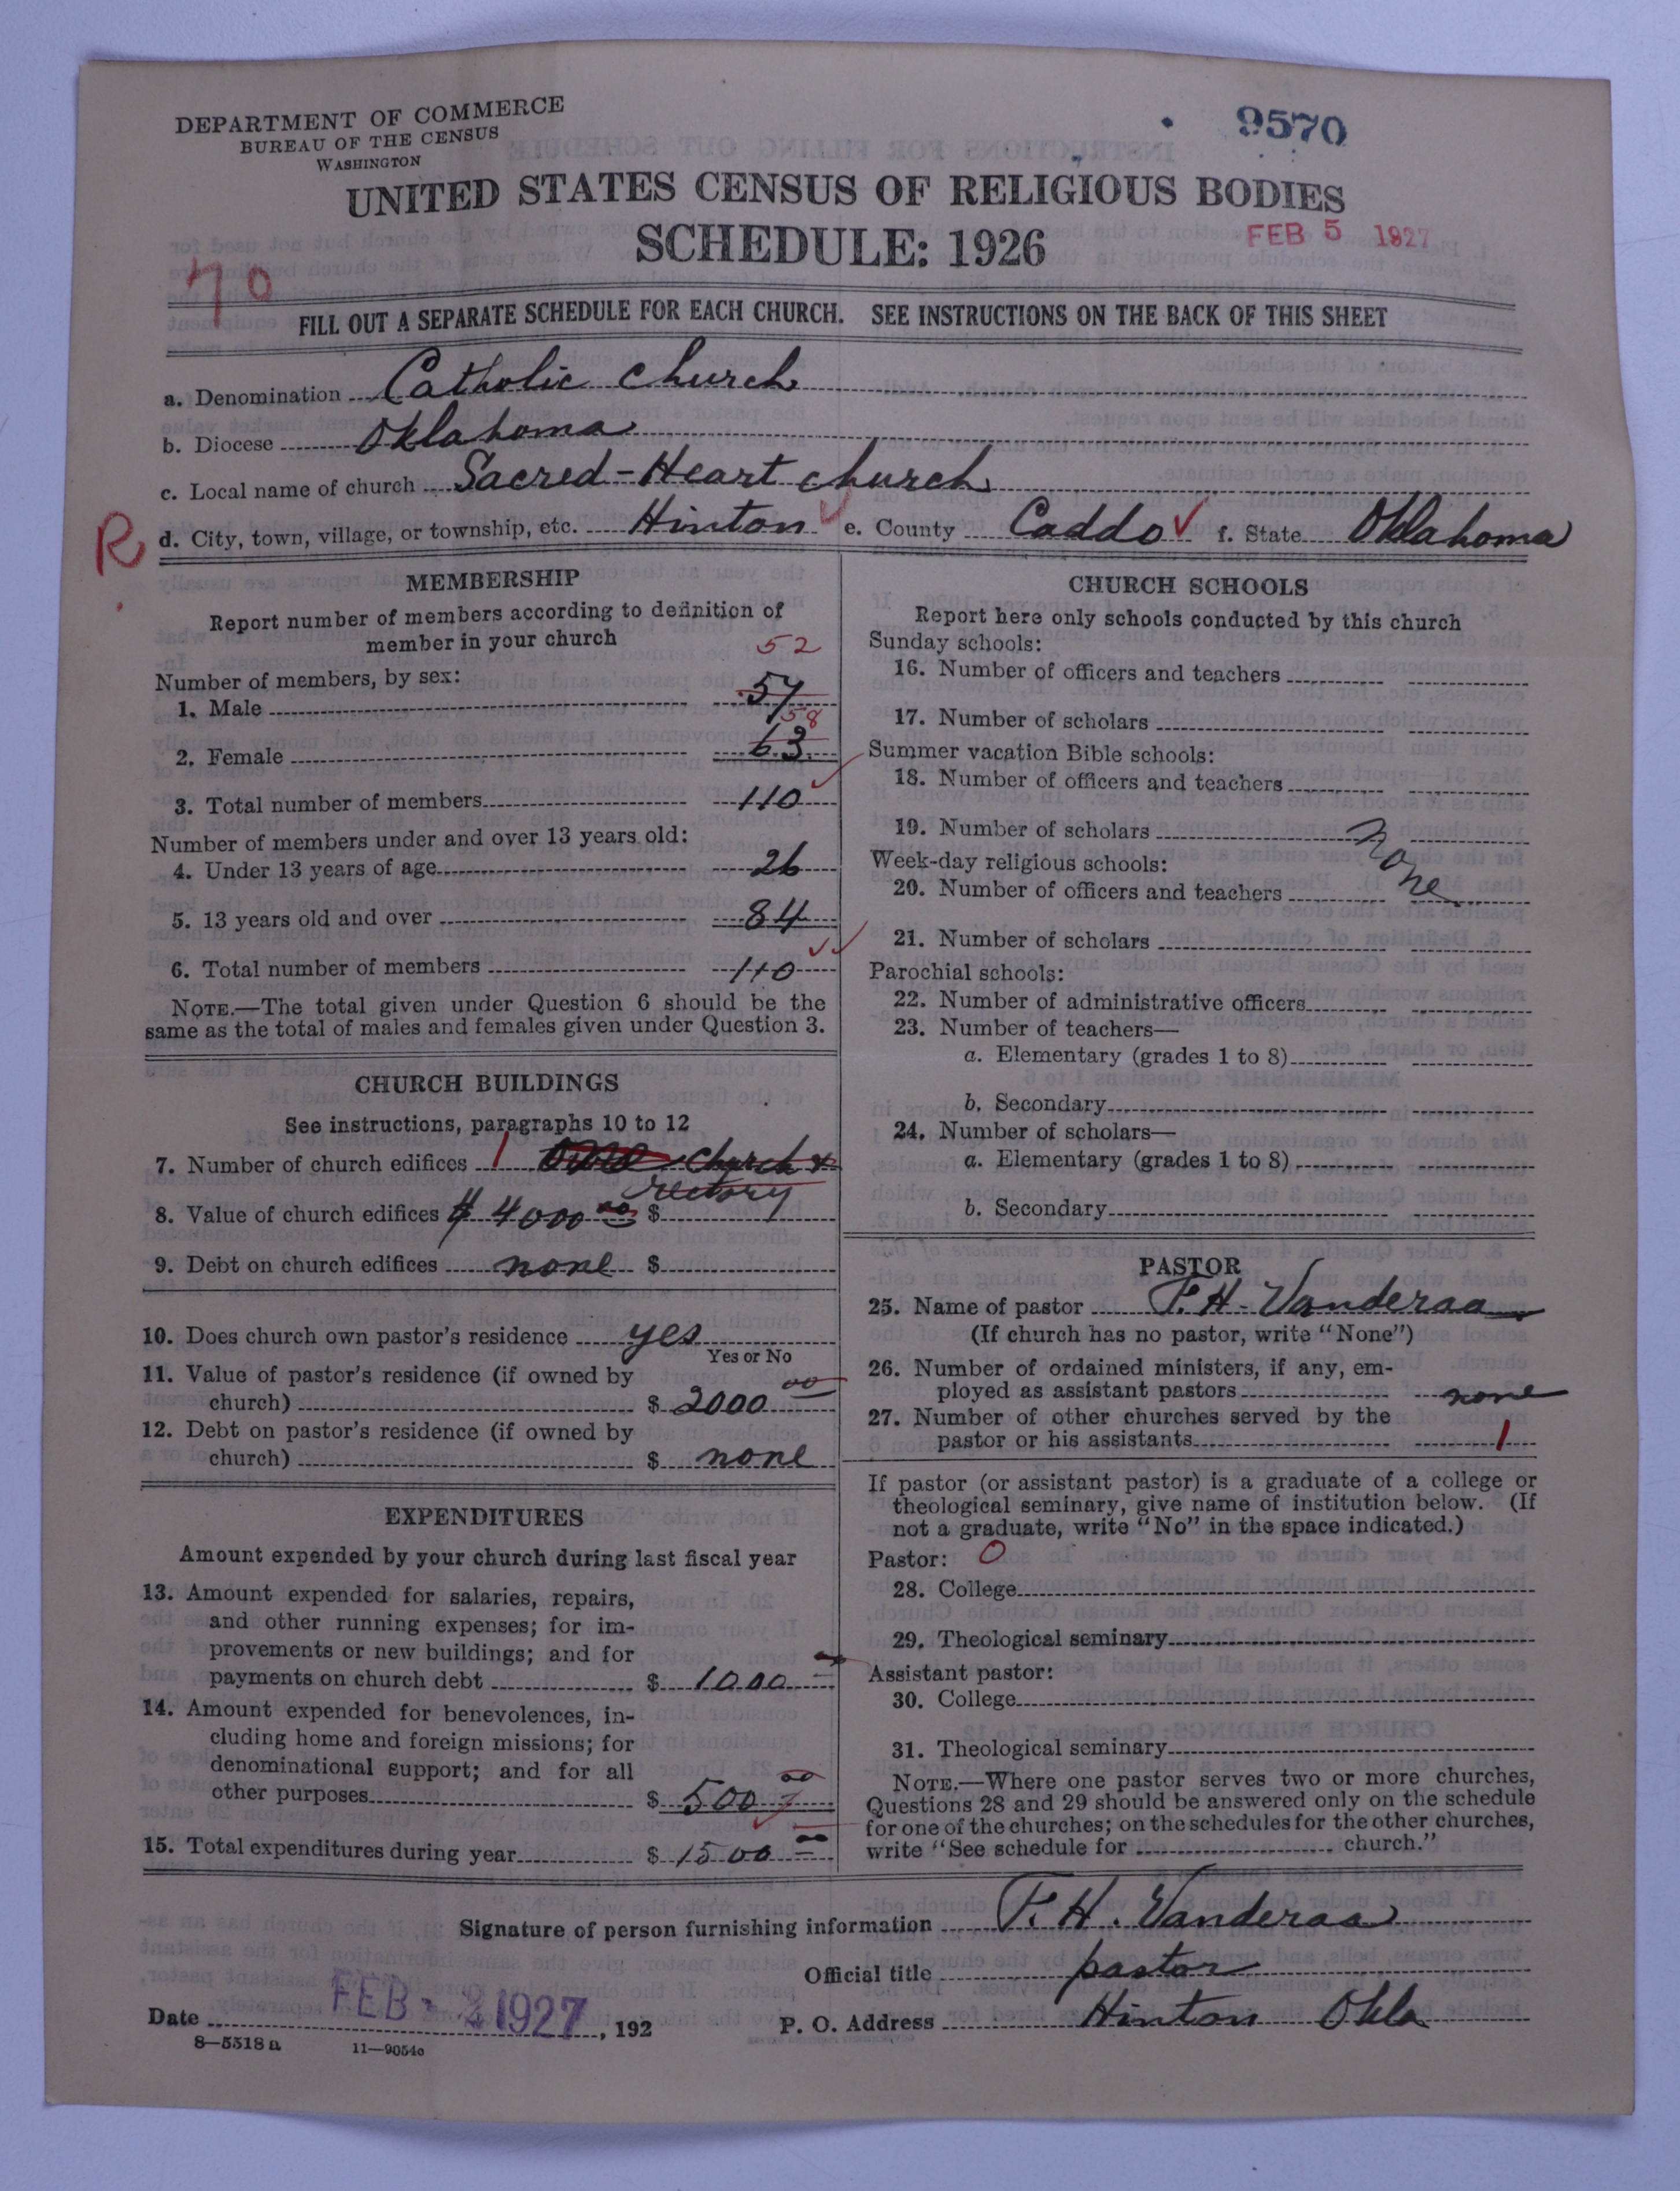 DEPARTMENT OF COMMERCE
BUREAU OF THE CENSUS
WASHINGTON
9570
UNITED STATES CENSUS OF RELIGIOUS BODIES
SCHEDULE: 1926
FEB 5 1927
70
FILL OUT A SEPARATE SCHEDULE FOR EACH CHURCH. SEE INSTRUCTIONS ON THE BACK OF THIS SHEET
a. Denomination Catholic church
b. Diocese Oklahoma
c. Local name of church Sacred-Heart church
R d. City, town, village, or township, etc. Hinton e. County Caddo f. State Oklahoma
MEMBERSHIP
Report number of members according to definition of
member in your church
52
Number of members, by sex:
1. Male 57
58
2. Female 63
3. Total number of members 110
Number of members under and over 13 years old:
4. Under 13 years of age 26
5. 13 years old and over 84
6. Total number of members 110
NOTE.—The total given under Question 6 should be the
same as the total of males and females given under Question 3.
CHURCH BUILDINGS
See instructions, paragraphs 10 to 12
7. Number of church edifices 1 church &
rectory
8. Value of church edifices $ 4000 00 $
9. Debt on church edifices none $
10. Does church own pastor's residence yes
Yes or No
11. Value of pastor's residence (if owned by
church) $ 2000 00
12. Debt on pastor's residence (if owned by
church) $ none
EXPENDITURES
Amount expended by your church during last fiscal year
13. Amount expended for salaries, repairs,
and other running expenses; for im-
provements or new buildings; and for
payments on church debt $ 1000
14. Amount expended for benevolences, in-
cluding home and foreign missions; for
denominational support; and for all
other purposes $ 500 00
15. Total expenditures during year $ 1500 00
CHURCH SCHOOLS
Report here only schools conducted by this church
Sunday schools:
16. Number of officers and teachers
17. Number of scholars
Summer vacation Bible schools:
18. Number of officers and teachers
19. Number of scholars
None
Week-day religious schools:
20. Number of officers and teachers
21. Number of scholars
Parochial schools:
22. Number of administrative officers
23. Number of teachers—
a. Elementary (grades 1 to 8)
b. Secondary
24. Number of scholars—
a. Elementary (grades 1 to 8)
b. Secondary
PASTOR
25. Name of pastor F. H. Vanderaa
(If church has no pastor, write "None")
26. Number of ordained ministers, if any, em-
ployed as assistant pastors none
27. Number of other churches served by the
pastor or his assistants 1
If pastor (or assistant pastor) is a graduate of a college or
theological seminary, give name of institution below. (If
not a graduate, write "No" in the space indicated.)
Pastor: 0
28. College
29. Theological seminary
Assistant pastor:
30. College
31. Theological seminary
NOTE.—Where one pastor serves two or more churches,
Questions 28 and 29 should be answered only on the schedule
for one of the churches; on the schedules for the other churches,
write "See schedule for church."
Signature of person furnishing information F. H. Vanderaa
Official title pastor
Date FEB - 2 1927, 192
P. O. Address Hinton Okla
8—5518 a 11—9054c